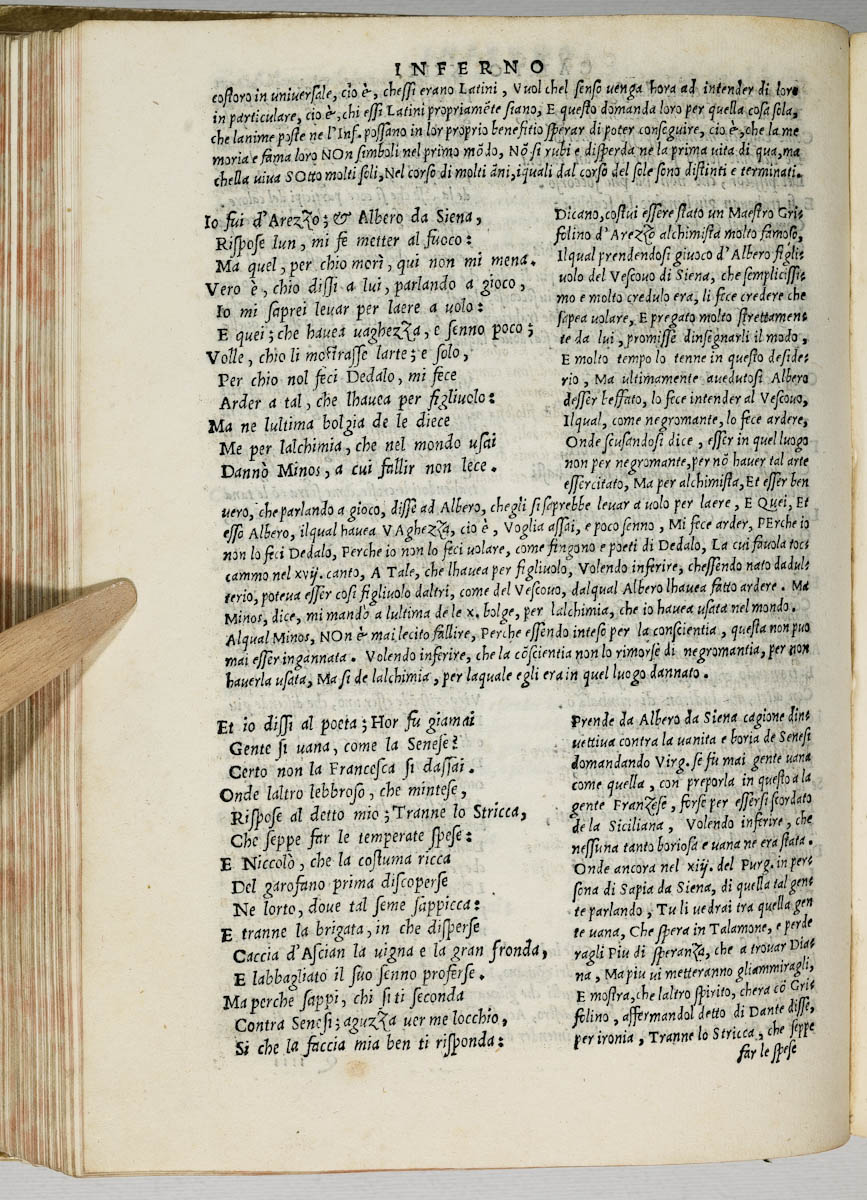 INFERNO
costoro in universale, cio è, chessi erano Latini, Vuol chel senso uenga hora ad intender di loro
in particulare, cio è, chi essi Latini propriamẽte siano, E questo domanda loro per quella cosa sola,
che lanime poste ne l'Inf. possano in lor proprio benefitio sperar di poter conseguire, cio è, che la me
moria e fama loro NOn simboli nel primo mõdo, Nõ si rubi e disperda ne la prima uita di qua, ma
chella uiua SOtto molti soli, Nel corso di molti ãni, iquali dal corso del sole sono distinti e terminati.
Io fui d'Arezzo; & Albero da Siena,
Rispose lun, mi fe metter al fuoco:
Ma quel, per chio morì, qui non mi mena.
Vero è, chio dissi a lui, parlando a gioco,
Io mi saprei leuar per laere a uolo:
E quei; che hauea uaghezza, e senno poco;
Volle, chio li mostrasse larte; e solo,
Per chio nol feci Dedalo, mi fece
Arder a tal, che lhauea per figliuolo:
Ma ne lultima bolgia de le diece
Me per lalchimia, che nel mondo usai
Dannò Minos, a cui fallir non lece.
Dicano, costui essere stato un Maestro Gri-
folino d'Arezzo alchimista molto famoso,
Ilqual prendendosi giuoco d'Albero figli-
uolo del Vescouo di Siena, che semplicissi-
mo e molto credulo era, li fece credere che
sapea uolare, E pregato molto strettamen-
te da lui, promisse dinsegnarli il modo,
E molto tempo lo tenne in questo deside-
rio, Ma ultimamente auedutosi Albero
desser beffato, lo fece intender al Vescouo,
Ilqual, come negromante, lo fece ardere,
Onde scusandosi dice, esser in quel luogo
non per negromante, per nõ hauer tal arte
essercitato, Ma per alchimista, Et esser ben
uero, che parlando a gioco, disse ad Albero, chegli si saprebbe leuar a uolo per laere, E Quei, Et
esso Albero, ilqual hauea VAghezza, cio è, Voglia assai, e poco senno, Mi fece arder, PErche io
non lo feci Dedalo, Perche io non lo feci uolare, come fingono e poeti di Dedalo, La cui fauola toc-
cammo nel xvij. canto, A Tale, che lhauea per figliuolo, Volendo inferire, chessendo nato dadul-
terio, poteua esser cosi figliuolo daltri, come del Vescouo, dalqual Albero lhauea fatto ardere. Ma
Minos, dice, mi mandò a lultima de le x. bolge, per lalchimia, che io hauea usata nel mondo.
Alqual Minos, NOn è mai lecito fallire, Perche essendo inteso per la conscientia, questa non puo
mai esser ingannata. Volendo inferire, che la cõscientia non lo rimorse di negromantia, per non
hauerla usata, Ma si de lalchimia, per laquale egli era in quel luogo dannato.
Et io dissi al poeta; Hor fu giamai
Gente si uana, come la Senese?
Certo non la Francesca si dassai.
Onde laltro lebbroso, che mintese,
Rispose al detto mio; Tranne lo Stricca,
Che seppe far le temperate spese:
E Niccolò, che la costuma ricca
Del garofano prima discoperse
Ne lorto, doue tal seme sappicca:
E tranne la brigata, in che disperse
Caccia d'Ascian la uigna e la gran fronda,
E labbagliato il suo senno proferse.
Ma perche sappi, chi si ti seconda
Contra Senesi; aguzza uer me locchio,
Si che la faccia mia ben ti risponda:
Prende da Albero da Siena cagione din-
uettiua contra la uanita e boria de Senesi
domandando Virg. se fu mai gente uana
come quella, con preporla in questo a la
gente Franzese, forse per essersi scordato
de la Siciliana, Volendo inferire, che
nessuna tanto boriosa e uana ne era stata.
Onde ancora nel xiij. del Purg. in per-
sona di Sapia da Siena, di quella tal gen-
te parlando, Tu li uedrai tra quella gen
te uana, Che spera in Talamone, e perde
ragli Piu di speranza, che a trouar Dia-
na, Ma piu ui metteranno gliammiragli,
E mostra, che laltro spirito, chera cõ Gri-
folino, affermandol detto di Dante disse,
per ironia, Tranne lo Stricca, che seppe
far le spese